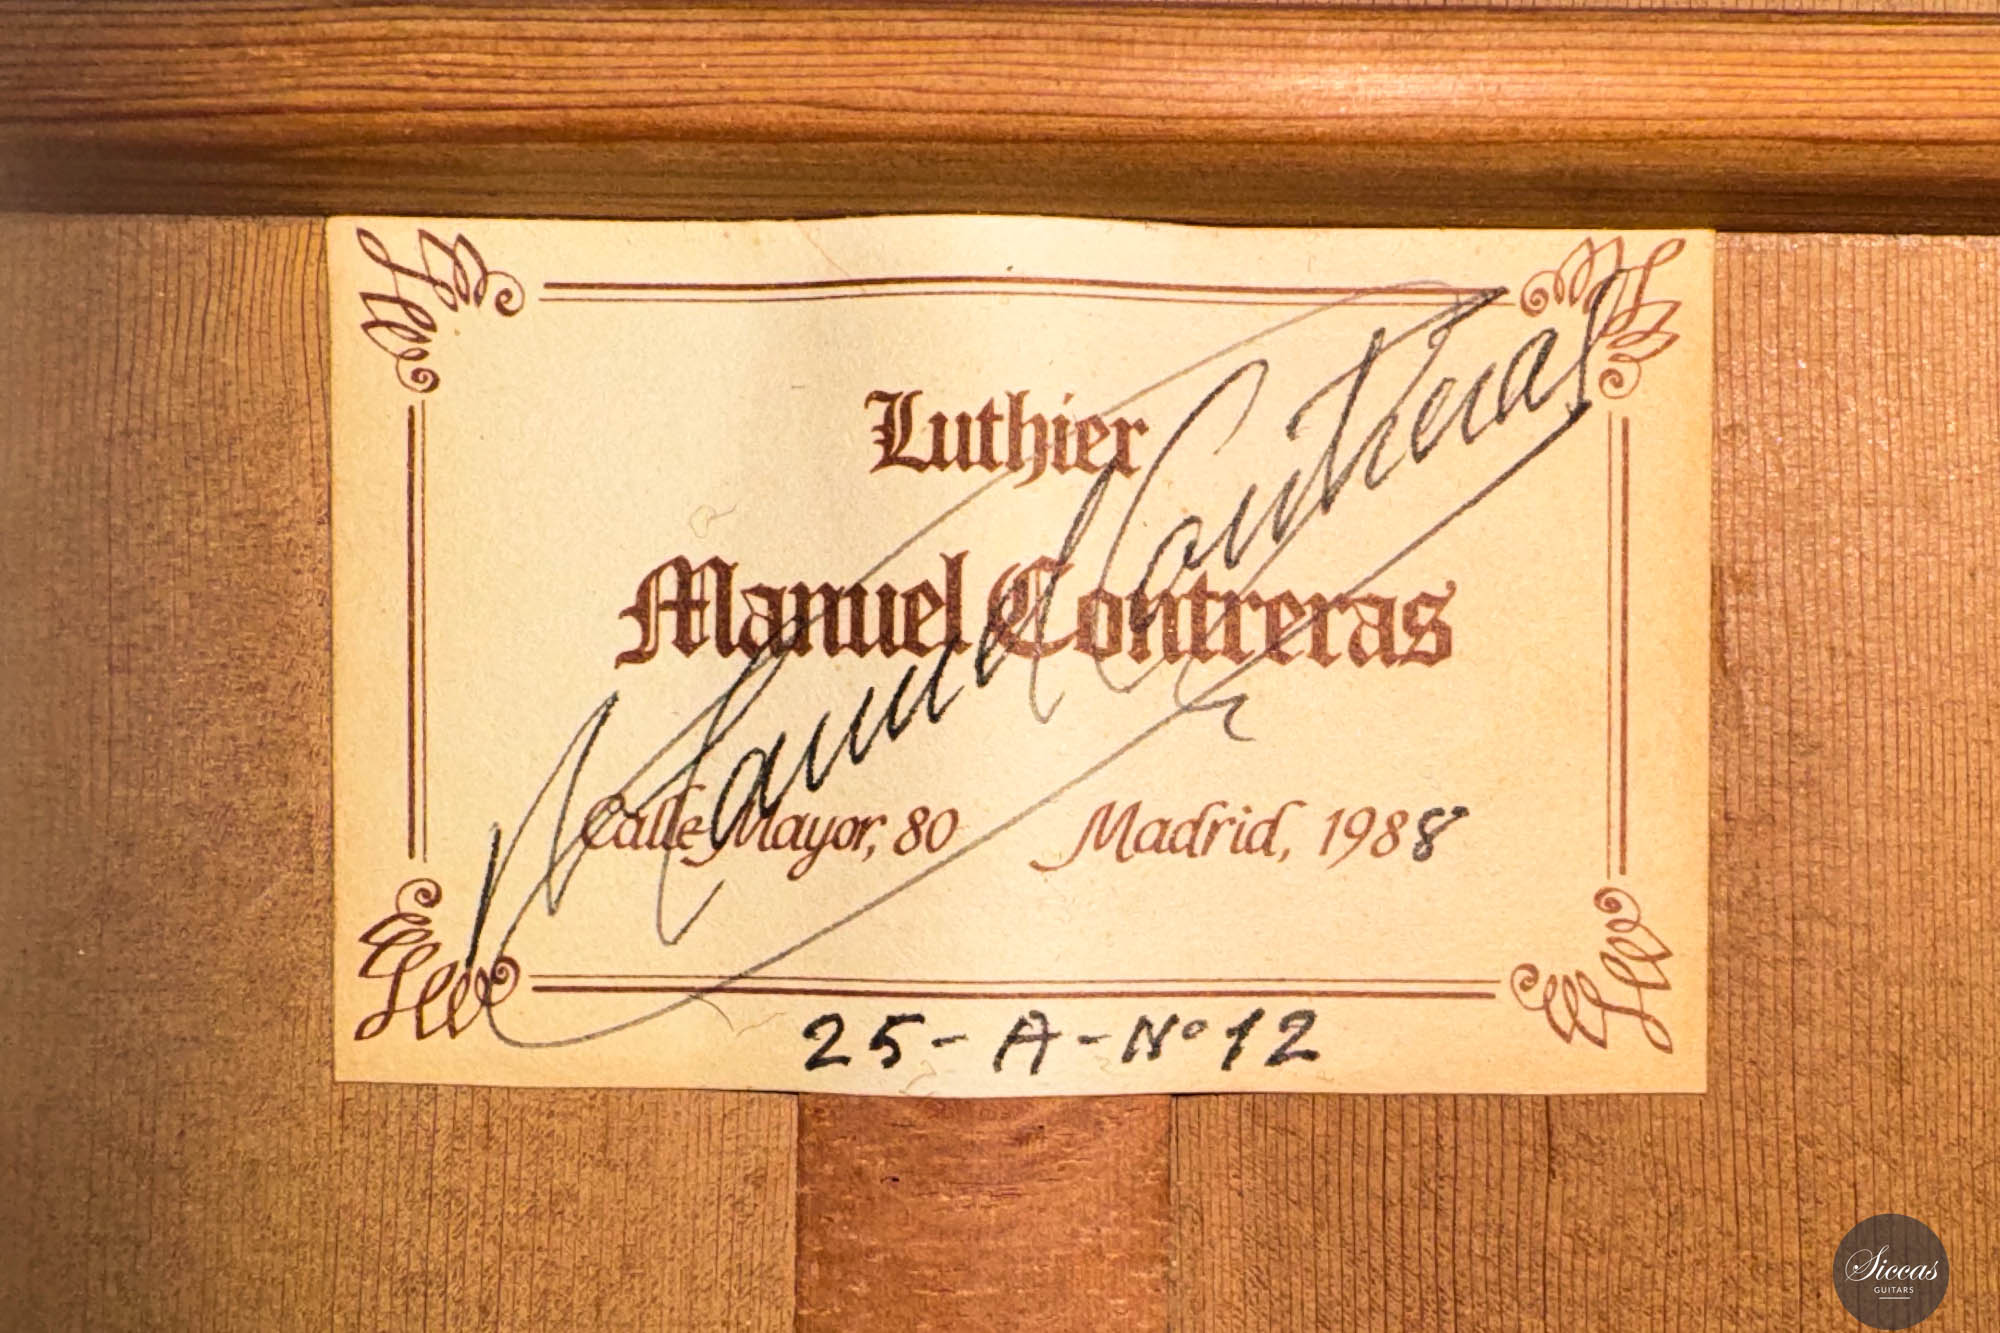 Luthier
Manuel Contreras
Manuel Contreras
Calle Mayor, 80 Madrid, 1988
25-A-Nº12
Siccas
GUITARS